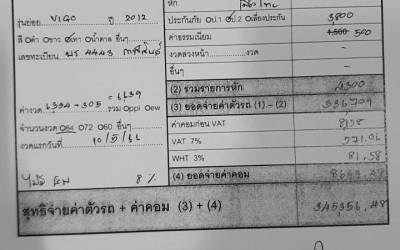 รุ่นย่อย VIGO ปี 2012
สี Oดำ Oขาว Oเทา Oน้ำตาล อื่นๆ
เลขทะเบียน บร 4443 กาฬสินธุ์
ค่างวด 6,334 - 305 = 6,639 รวม Oppi Oew
จำนวนงวด O84 O72 O60 อื่นๆ
งวดแรกวันที่ 10/5/66
8 %
หัก
ประกันภัย Oป.1 Oป.2 Oเลื่องประกัน 3,800
ค่าธรรมเนียม 4,500 500
งวดล่วงหน้า งวด -
อื่นๆ -
(2) รวมรายการหัก 4300
(3) ยอดจ่ายค่าตัวรถ (1) - (2) 336709
ค่าคอมก่อน VAT 8158
VAT 7% 571.06
WHT 3% 81.58
(4) ยอดจ่ายค่าคอม 8647.48
สุทธิจ่ายค่าตัวรถ + ค่าคอม (3) + (4) 345356.48